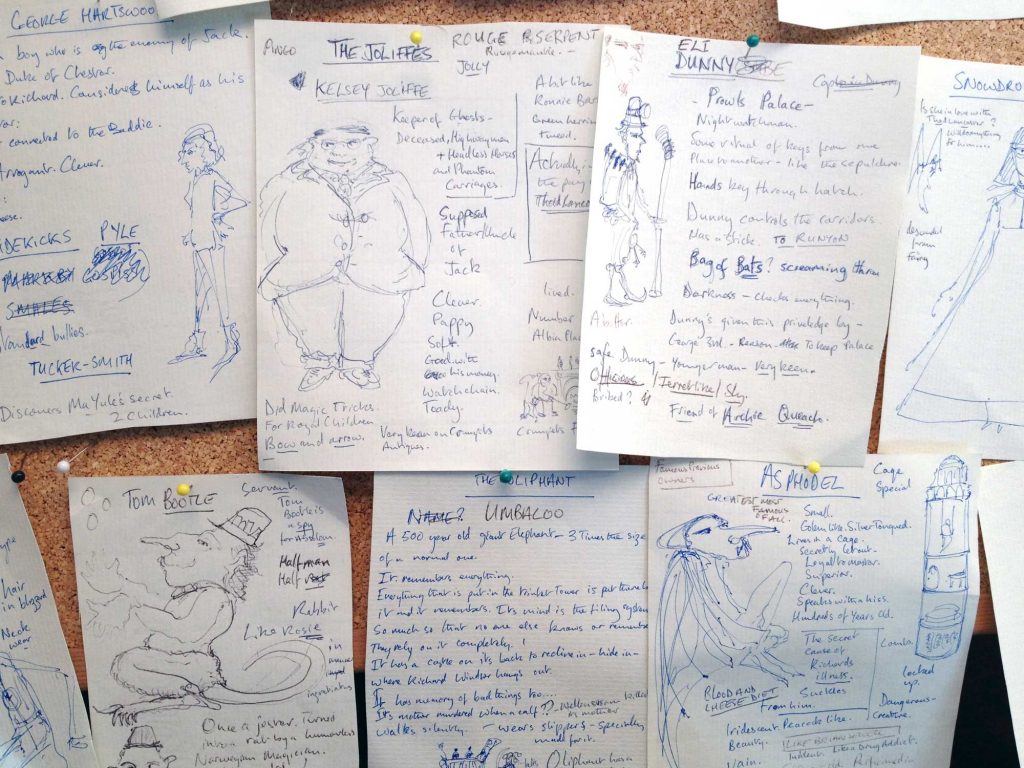 GEORGE HARTSWOO
boy who is the enemy of Jack.
Duke of Chesvar.
to Richard. Considers himself as his
connected to the Baddie.
Arrogant. Clever.
SIDEKICKS PYLE
SMALES
Standard bullies.
TUCKER-SMITH
Discovers Mr Yule's secret
2 Children.
ANGO THE JOLIFFES ROUGE SERPENT
JOLLY
KELSEY JOLIFFE
Keeper of Ghosts -
Deceased, Highwaymen
+ Headless Horses
and Phantom
Carriages.
Supposed
Father/Uncle
of
Jack
Clever.
Pappy
Soft.
Good with
his money
Watchchain.
Toady.
Did Magic Tricks.
For Royal Children
Bow and arrow.
Very keen on Crumpets
Antiques.
A bit like
Ronnie Bar
Green herrin
Tweed.
Actually,
the
lived.
Number
Albin Pla
Crumpets
ELI
DUNNY
Captain Dunny
- Prowls Palace -
Nightwatchman.
Some ritual of keys from one
Place to another - like the sepulchre.
Hands key through hatch.
Dunny controls the corridors
Has a stick. TO RUNYON
Bag of Bats? screaming
Darkness - checks everything.
Dunny's given this priviledge by -
George 3rd. - Reason to keep Palace
safe. Dunny - Younger man - very keen.
Officious / Ferret like / Sly.
Bribed?
Friend of Archie Queach.
SNOWDRO
Is she in love with
Will do anything
for him...
descended
from
fairy
TOM BOOTLE
Servant.
Tom
Bootle is
a spy
for
Half man
Half rat
Rabbit
Like Rosie
in
ingratiating
Once a jester. Turned
into a rat by a humourless
Norwegian Magician.
hair
in blizzard
Neck
wear
THE OLIPHANT
NAME? UMBALOO
A 500 year old giant Elephant - 3 Times the size
of a normal one.
It remembers everything.
Everything that is put in the Tower is put
it and it remembers. It's mind is the filing system
So much so that no one else knows or remembers
They rely on it completely!
It has a castle on its back to recline in - hide in -
where Richard Windsor hangs out.
It has memory of bad things too....
It's mother murdered when a calf
Walks silently. - wears slippers - specially
made for it.
Oliphant has a
Famous Previous
Owners
ASPHODEL
GREATEST MOST
FAMOUS
OF ALL.
Cage
Special
Small.
Golem like. Silver Tongued.
Lives in a cage.
Secretly let out.
Loyal to master.
Superior.
Clever.
Speaks with a hiss.
Hundreds of Years Old.
The Secret
cause of
Richards
illness.
Suckles
From him.
BLOOD AND
CHEESE DIET
locked
up.
Dangerous -
Creative.
Iridescent Peacock like.
Beauty.
Vain.
Indolent. Like a Drug Addict.